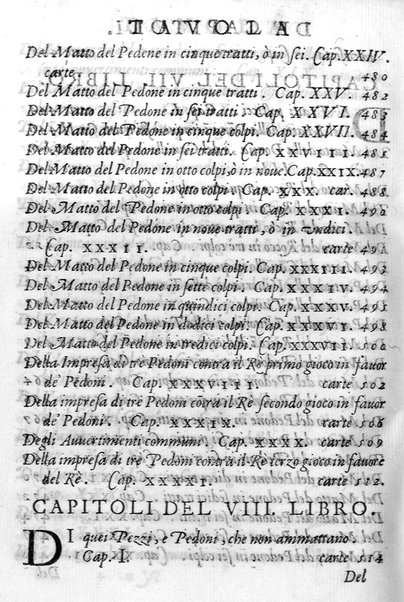 Del Matto del Pedene in cinque tratti, ò in sei. Cap. XXIV.
carte 480
Del Matto del Pedone in cinque tratti. Cap. XXV. 482
Del Matto del Pedone in sei tratti. Cap. XXVI. 483
Del Matto del Pedone in cinque colpi. Cap. XXVII. 484
Del Matto del Pedone in sei tratti. Cap. XXVIII. 485
Del Matto del Pedone in otto colpi, ò in noue. Cap. XXIX. 487
Del Matto del Pedone in otto colpi. Cap. XXX. car. 488
Del Matto del Pedone in otto colpi. Cap. XXXI. 492
Del Matto del Pedone in noue tratti, ò in vndici.
Cap. XXXII. carte 491
Del Matto del Pedone in cinque colpi. Cap. XXXIII. 493
Del Matto del Pedone in sette colpi. Cap. XXXIV. 494
Del Matto del Pedone in quindici colpi. Cap. XXXV. 495
Del Matto del Pedone in dodici colpi. Cap. XXXVI. 498
Del Matto del Pedone in tredici colpi. Cap. XXXVII. 500
Della Impresa di trè Pedoni contra il Re primo gioco in fauor
de' Pedoni. Cap. XXXVIII. carte 502
Della impresa di trè Pedoni cõtra il Re secondo gioco in fauor
de' Pedoni. Cap. XXXIX. carte 506
Degli Auuertimenti communi. Cap. XXXX. carte 509
Della impresa di trè Pedoni contra il Re terzo gioco in fauore
del Re. Cap. XXXXI. carte 512.
CAPITOLI DEL VIII. LIBRO.
DI quei Pezzi, e Pedoni, che non ammattano
Cap. I. carte 514
Del